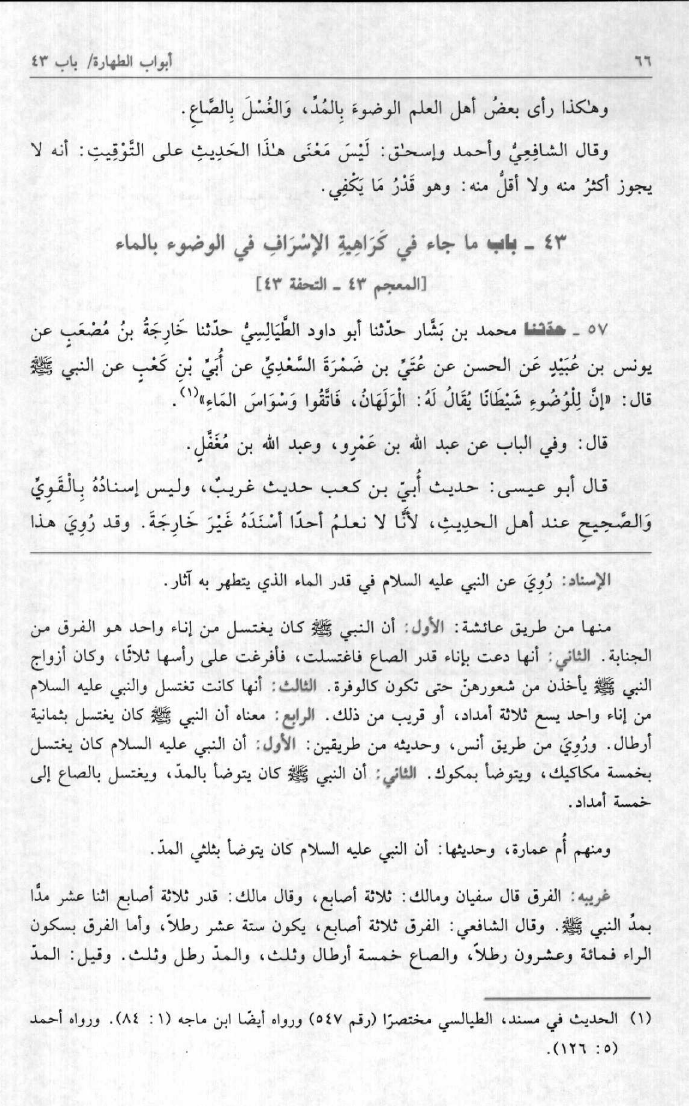 ٦٦
أبواب الطهارة/ باب ٤٣
وهٰكذا رأى بعضُ أهل العلم الوضوءَ بِالمُدِّ، وَالغُسْلَ بِالصَّاعِ.
وقال الشافِعِيُّ وأحمد وإسحٰق: لَيْسَ مَعْنَى هٰذَا الحَدِيثِ على التَّوْقِيتِ: أنه لا
يجوز أكثرُ منه ولا أقلُّ منه: وهو قَدْرُ مَا يَكْفِي.
٤٣ ـ باب ما جاء في كَرَاهِيةِ الإسْرَافِ في الوضوء بالماء
[المعجم ٤٣ ـ التحفة ٤٣]
٥٧ ـ حدّثنا محمد بن بَشَّار حدّثنا أبو داود الطَّيَالِسِيُّ حدّثنا خَارِجَةُ بنُ مُصْعَبٍ عن
يونس بن عُبَيْدٍ عَن الحسن عن عُتَيِّ بن ضَمْرَةَ السَّعْدِيِّ عن أُبَيِّ بْنِ كَعْبٍ عن النبي ﷺ
قال: «إنَّ لِلْوُضُوءِ شَيْطَانًا يُقَالُ لَهُ: الْوَلَهَانُ، فَاتَّقُوا وَسْوَاسَ المَاءِ»(١).
قال: وفي الباب عن عبد الله بن عَمْرٍو، وعبد الله بن مُغَفَّلٍ.
قال أبو عيسى: حديث أُبيّ بن كعب حديث غريبٌ، وليس إسنادُهُ بِالْقَوِيِّ
وَالصَّحِيحِ عند أهل الحديثِ، لأَنَّا لا نعلمُ أحدًا أسْنَدَهُ غَيْرَ خَارِجَةَ. وقد رُوِيَ هذا
الإسناد: رُوِيَ عن النبي عليه السلام في قدر الماء الذي يتطهر به آثار.
منها من طريق عائشة: الأول: أن النبي ﷺ كان يغتسل من إناء واحد هو الفرق من
الجنابة. الثاني: أنها دعت بإناء قدر الصاع فاغتسلت، فأفرغت على رأسها ثلاثًا، وكان أزواج
النبي ﷺ يأخذن من شعورهنّ حتى تكون كالوفرة. الثالث: أنها كانت تغتسل والنبي عليه السلام
من إناء واحد يسع ثلاثة أمداد، أو قريب من ذلك. الرابع: معناه أن النبي ﷺ كان يغتسل بثمانية
أرطال. ورُوِيَ من طريق أنس، وحديثه من طريقين: الأول: أن النبي عليه السلام كان يغتسل
بخمسة مكاكيك، ويتوضأ بمكوك. الثاني: أن النبي ﷺ كان يتوضأ بالمدّ، ويغتسل بالصاع إلى
خمسة أمداد.
ومنهم أُم عمارة، وحديثها: أن النبي عليه السلام كان يتوضأ بثلثي المدّ.
غريبه: الفرق قال سفيان ومالك: ثلاثة أصابع، وقال مالك: قدر ثلاثة أصابع اثنا عشر مدًّا
بمدِّ النبي ﷺ. وقال الشافعي: الفرق ثلاثة أصابع، يكون ستة عشر رطلاً، وأما الفرق بسكون
الراء فمائة وعشرون رطلاً، والصاع خمسة أرطال وثلث، والمدّ رطل وثلث. وقيل: المدّ
(١) الحديث في مسند، الطيالسي مختصرًا (رقم ٥٤٧) ورواه أيضًا ابن ماجه (١: ٨٤). ورواه أحمد
(٥: ١٢٦).